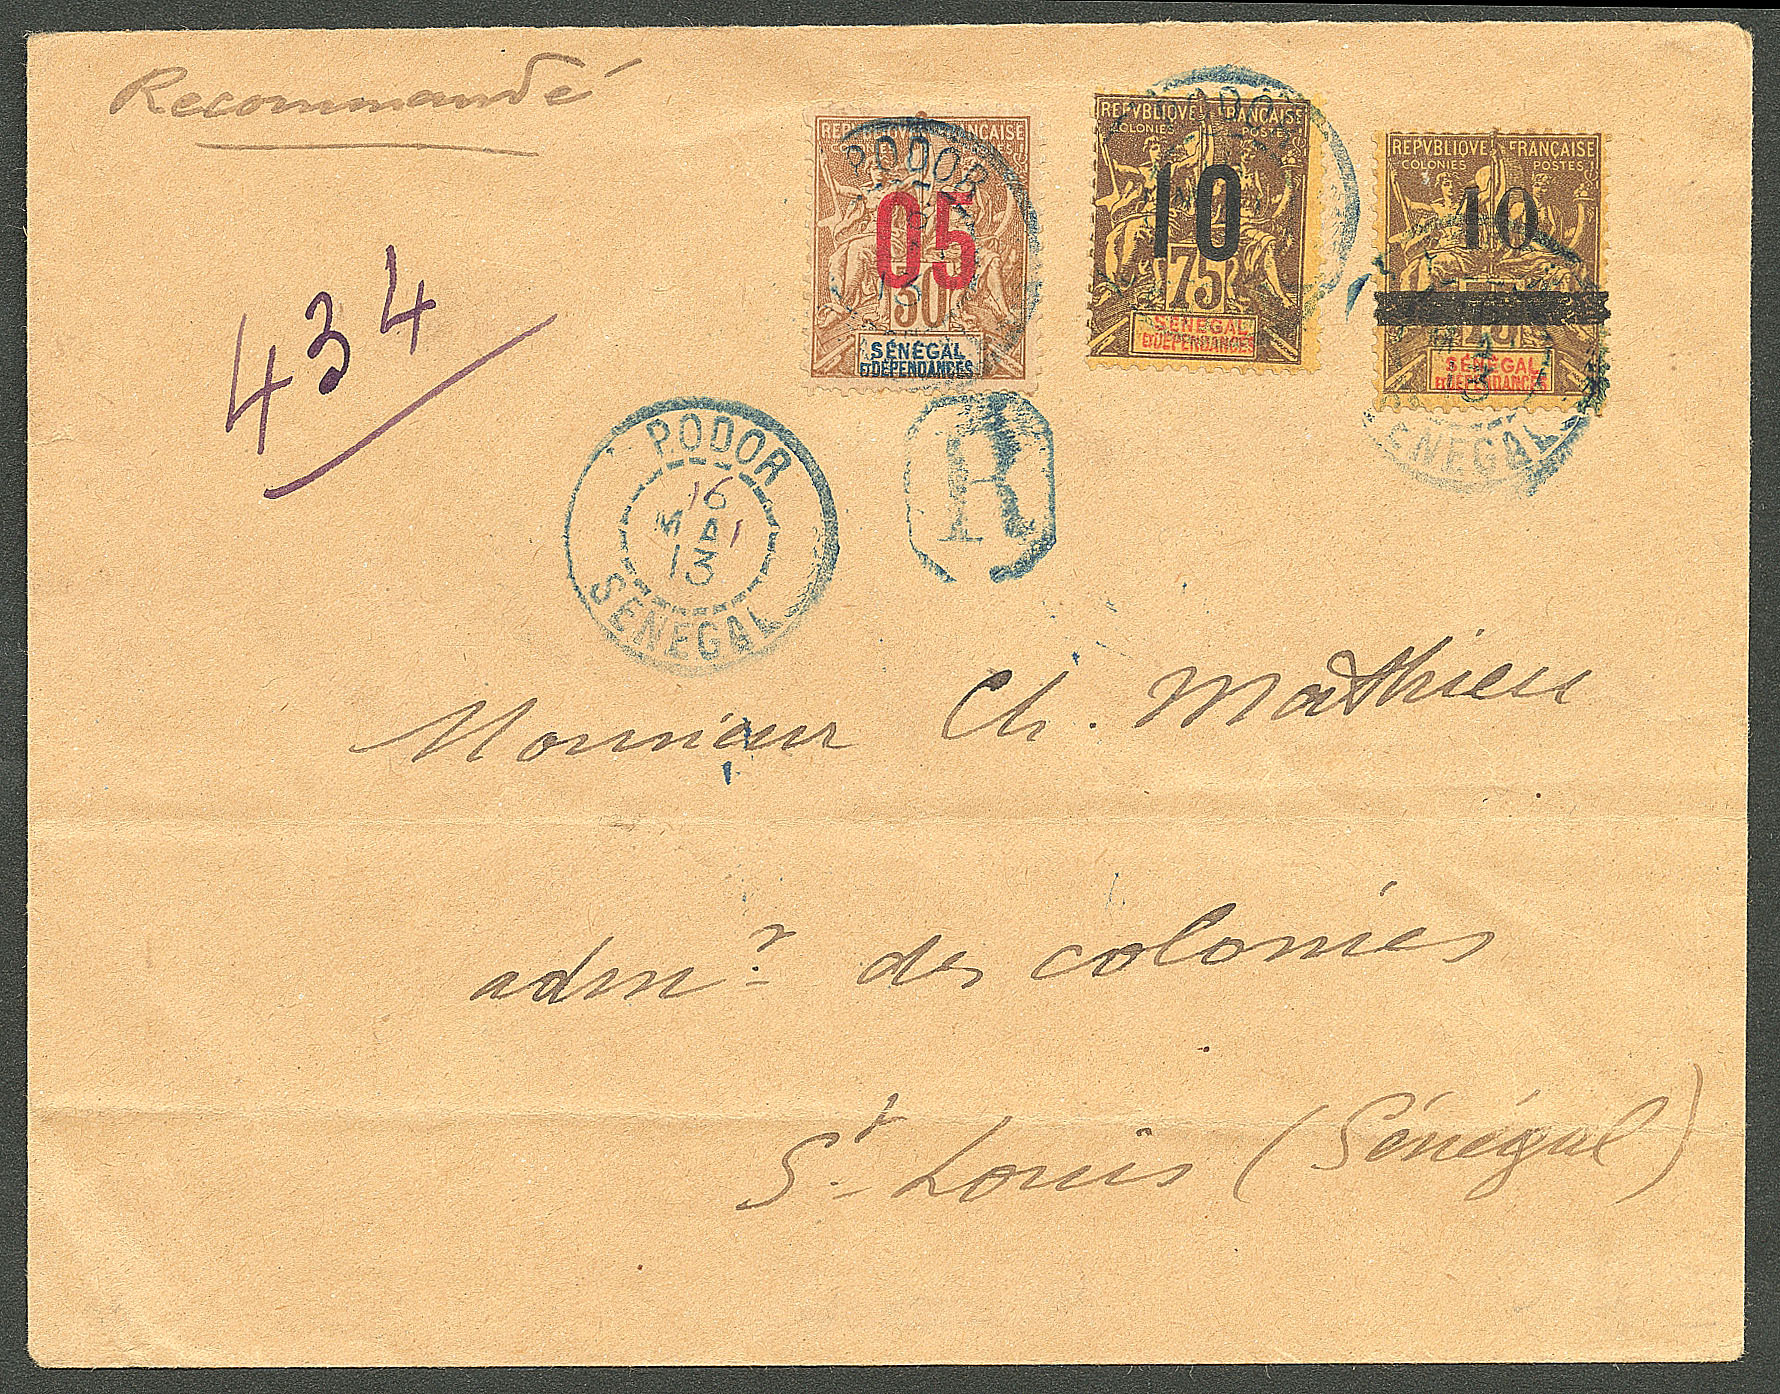 Recommandé
434
REPVBLIQVE FRANÇAISE
05
30
SÉNÉGAL
ET DÉPENDANCES
REPVBLIQVE FRANÇAISE
COLONIES POSTES
10
75
SÉNÉGAL
ET DÉPENDANCES
REPVBLIQVE FRANÇAISE
COLONIES POSTES
10
75
SÉNÉGAL
ET DÉPENDANCES
PODOR
SENEGAL
PODOR
16
MAI
13
SENEGAL
R
Monsieur Ch. Mathieu
admr des colonies
St Louis (Sénégal)